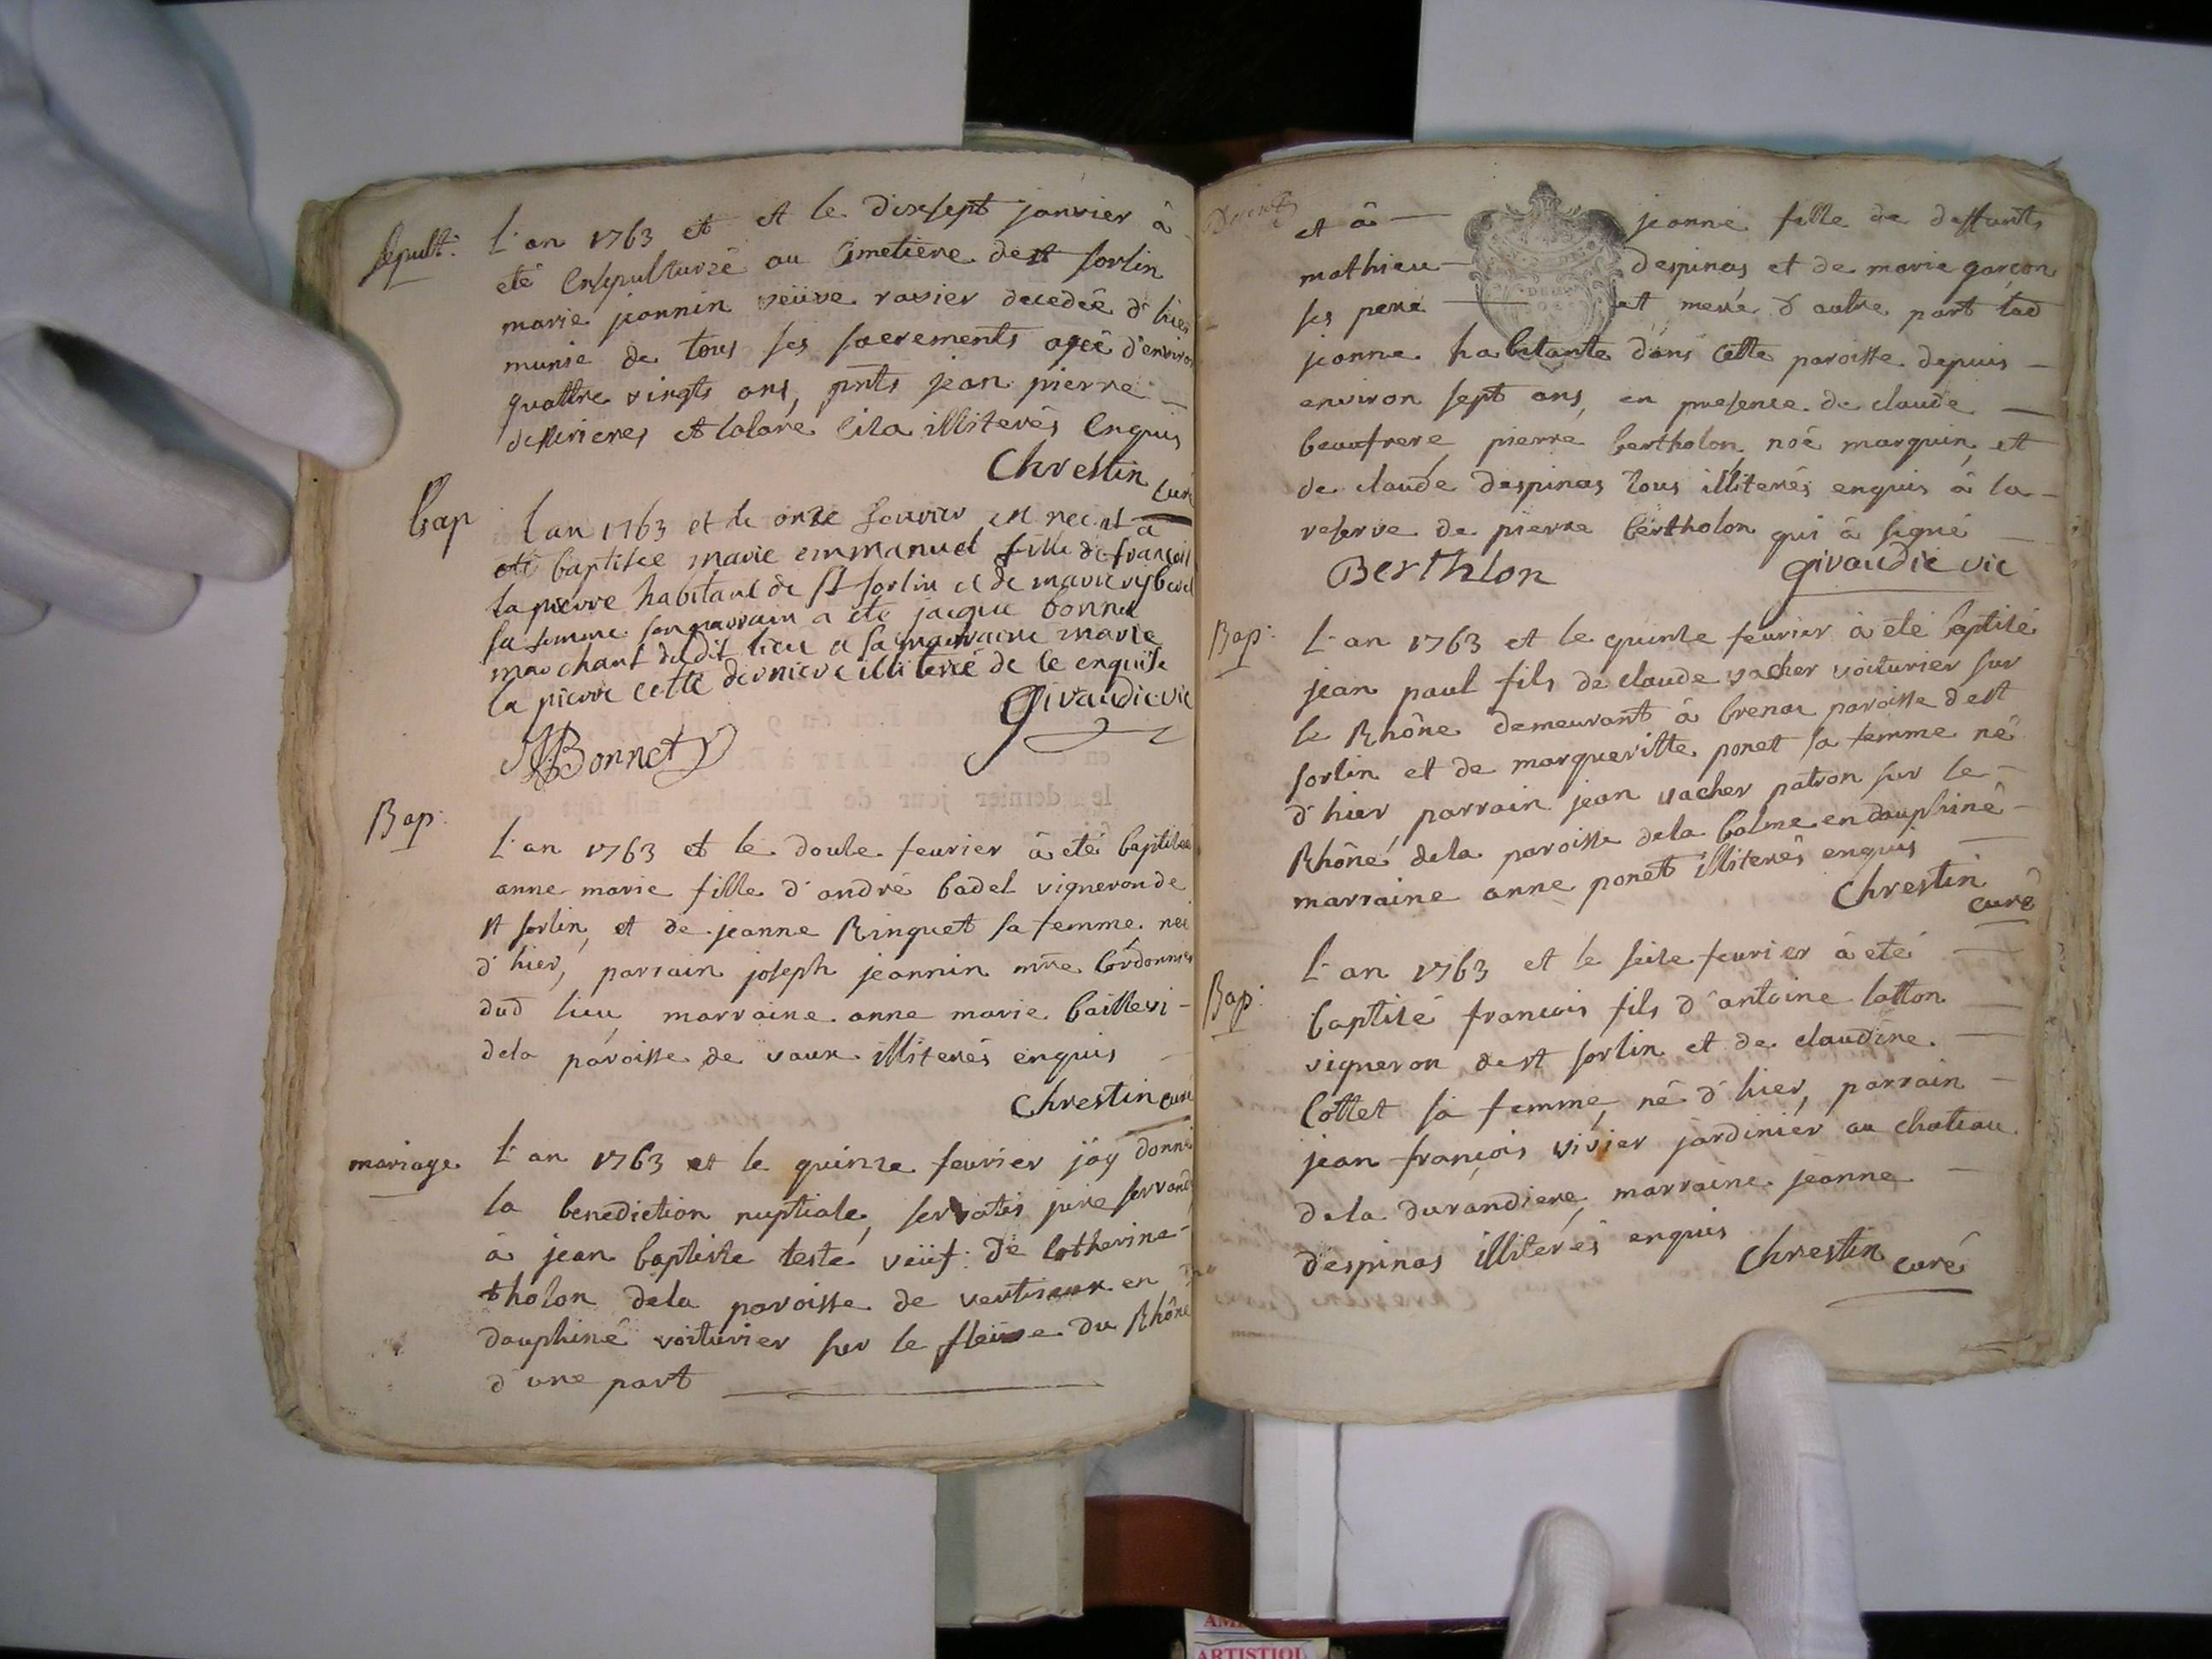 sepult:
L'an 1763 et et le dixsept janvier à
eté ensepulturée au Cimetiere de st sorlin
marie jeannin veüve ravier decedée d'hier
munie de tous ses sacrements agée d'environ
quattre vingts ans, pnts jean pierre
desrieres et illiterés enquis
Chrestin curé
Bap
L'an 1763 et le onze fevrier est née et à
été baptisée marie emmanuel fille de françois
la pierre habitant de St sorlin et de marie
sa femme son parrain a été jacque bonnet
marchant dudit lieu et sa marraine marie
la pierre cette derniere illiterée de ce enquise
Givaudie vic
JBonnet
Bap:
L'an 1763 et le douse feurier à eté baptisée
anne marie fille d'andré badel vigneron de
st sorlin, et de jeanne Ringuet sa femme née
d'hier, parrain joseph jeannin mtre Cordonnier
dud lieu marraine anne marie bailleri -
dela paroisse de vaux illiterés enquis
Chrestin curé
mariage
L'an 1763 et le quinze feurier jay donné
la benediction nuptiale, servatis jure servandis
à jean baptiste teste veüf de Catherine
tholon dela paroisse de vertrieux en
dauphiné voiturier sur le fleuve du Rhône
d'une part
et à jeanne fille de deffunts
mathieu despinas et de marie garçon
ses pere et mere d'autre part lad
jeanne habitante dans cette paroisse depuis
environ sept ans, en presence de claude
beaufrere, pierre bertholon, noé marquin, et
de claude despinas tous illiterés enquis à la
reserve de pierre bertholon qui à signé
Berthlon
Givaudie vic
Bap:
L'an 1763 et le quinse feurier à eté baptisé
jean paul fils de claude vacher voiturier sur
le Rhône demeurant à brenas paroisse de st
sorlin et de margueritte ponet sa femme né
d'hier parrain jean vacher patron sur le
Rhône dela paroisse dela balme en dauphiné
marraine anne ponet illiterés enquis
Chrestin
curé
Bap:
L'an 1763 et le seise feurier à eté
baptisé francois fils d'antoine latton
vigneron de st sorlin et de claudine
Cottet sa femme, né d'hier, parrain
jean françois vivier jardinier au chateau
dela durandiere, marraine jeanne
despinas illiterés enquis
Chrestin curé
ARTISTIQU